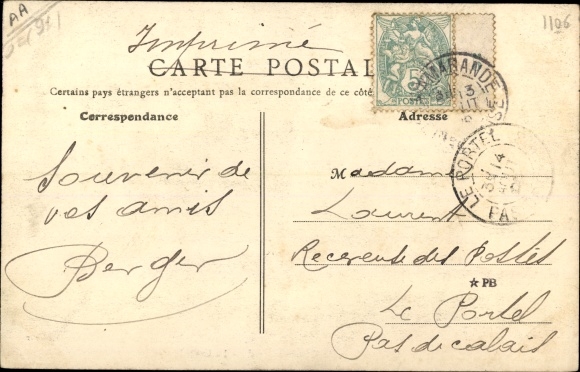 AA
1106
Imprimé
CARTE POSTAL
Certains pays étrangers n'acceptant pas la correspondance de ce côté
Correspondance
Adresse
5
POSTE
Souvenir de
vos amis
Berger
Madame
Laurent
Receveuse des Postes
★ PB
Le Portel
Pas de calais
MARANDE
13
LE PORTEL
14
PAS